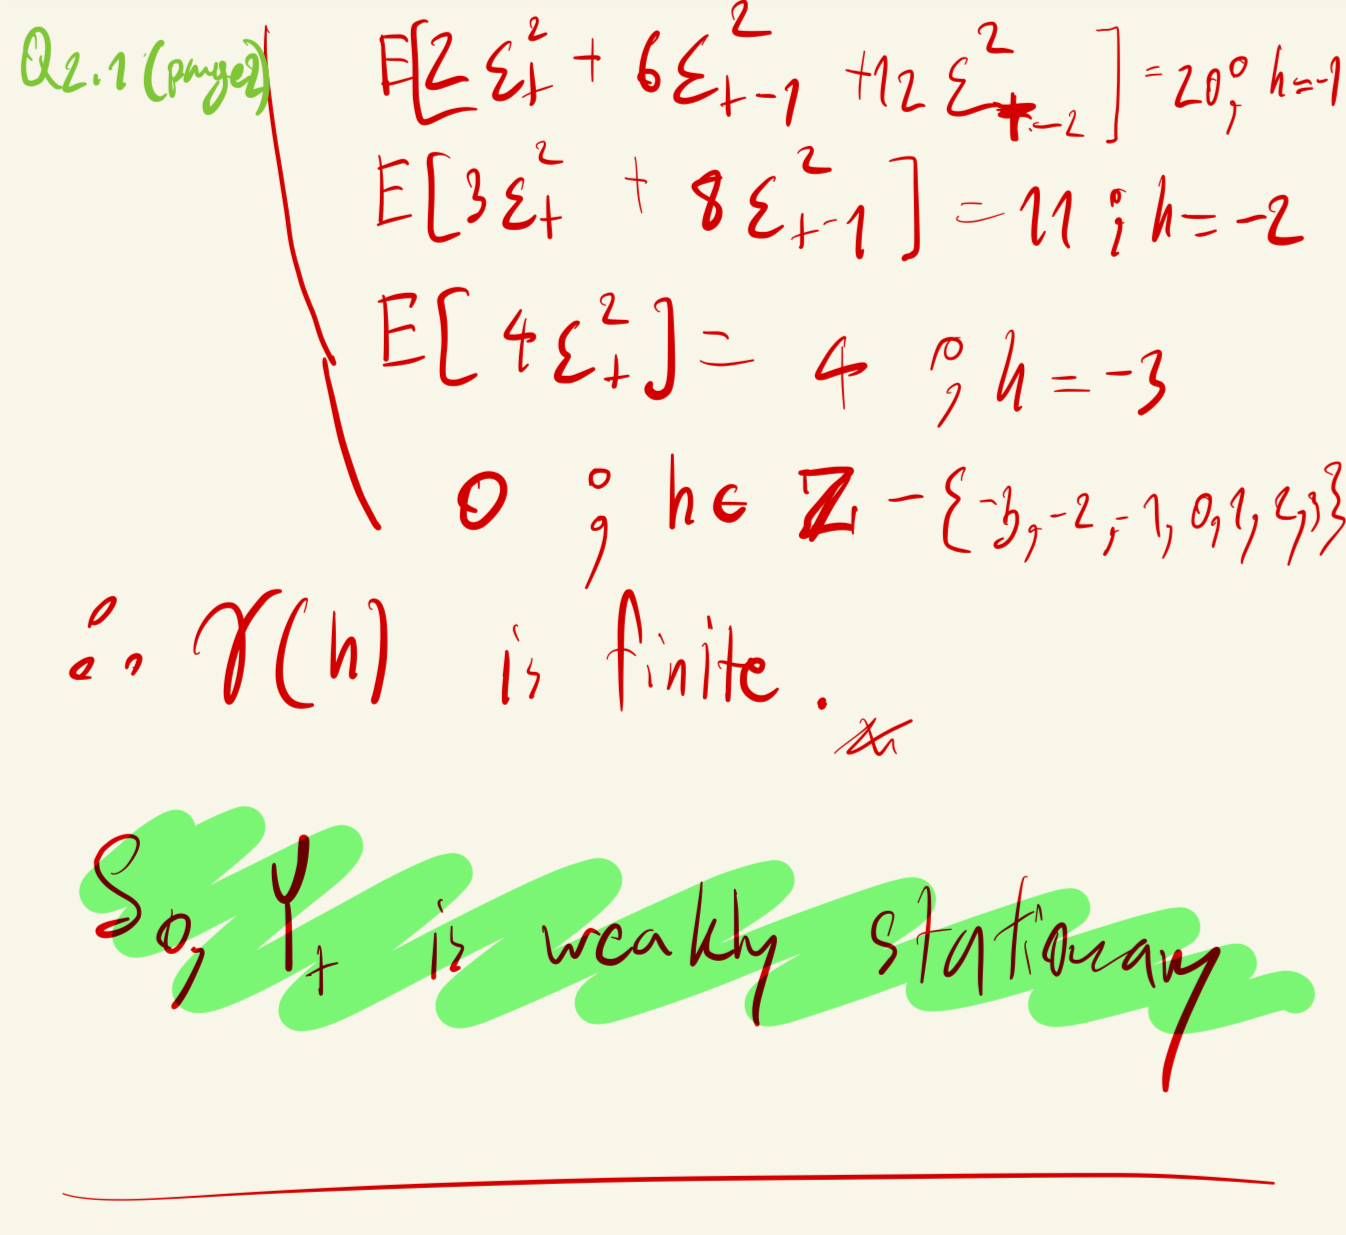 Q2.1 (page2)
E[2 ε_t^2 + 6ε_{t-1}^2 + 12 ε_{t-2}^2] = 20; h=-1
E[3ε_t^2 + 8ε_{t-1}^2] = 11; h=-2
E[4ε_t^2] = 4; h=-3
0; h∈ℤ-{-3,-2,-1,0,1,2,3}
∴ γ(h) is finite.
So, Y_t is weakly stationary